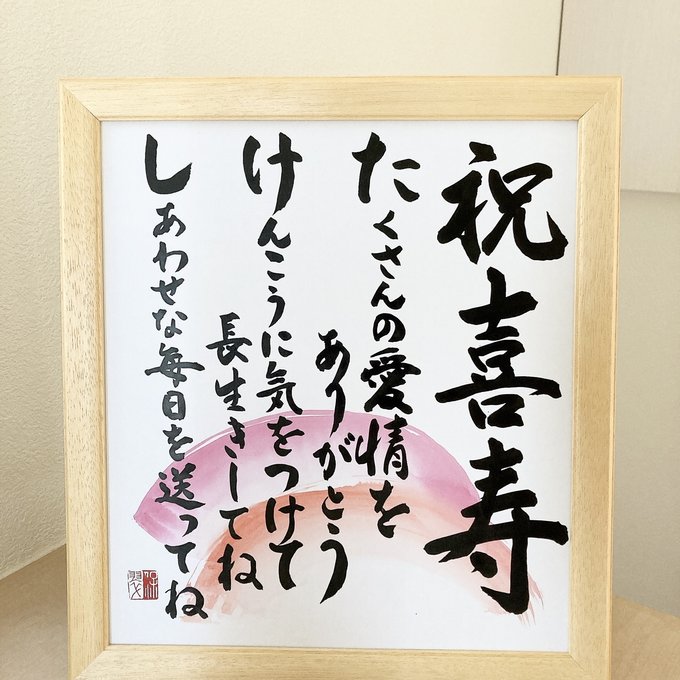 祝喜寿
たくさんの愛情を
ありがとう
けんこうに気をつけて
長生きしてね
しあわせな毎日を送ってね